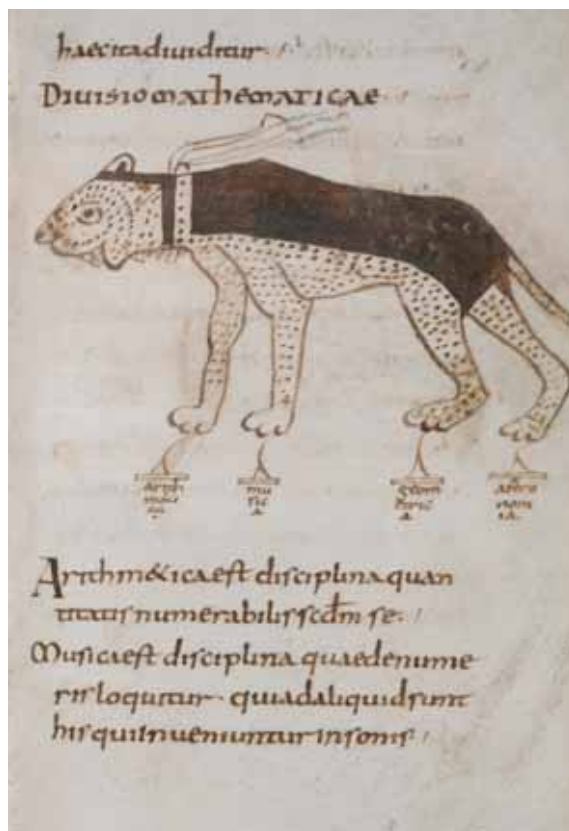 haec ita dividitur
Divisio mathematicae
Arith
meti
ca
mu
sic
a
geom
etric
a
astro
nom
ia
Arithmetica est disciplina quan
titatis numerabilis scdm se
Musica est disciplina quae de nume
ris loquitur quia ad aliquid sunt
his qui inveniuntur in sonis